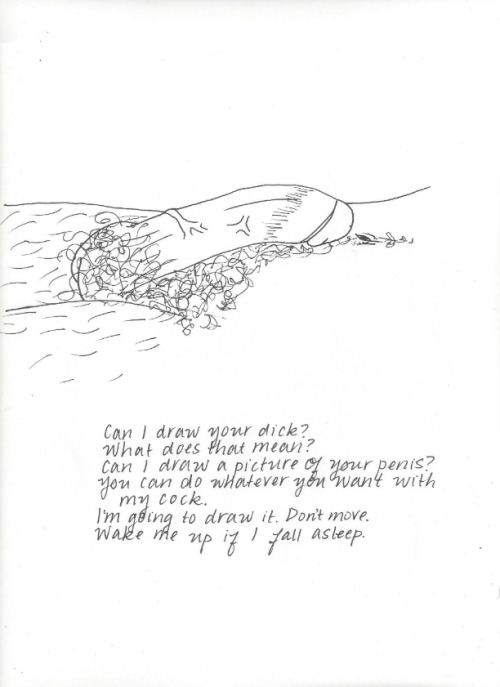 Can I draw your dick?
What does that mean?
Can I draw a picture of your penis?
You can do whatever you want with
my cock.
I'm going to draw it. Don't move.
Wake me up if I fall asleep.